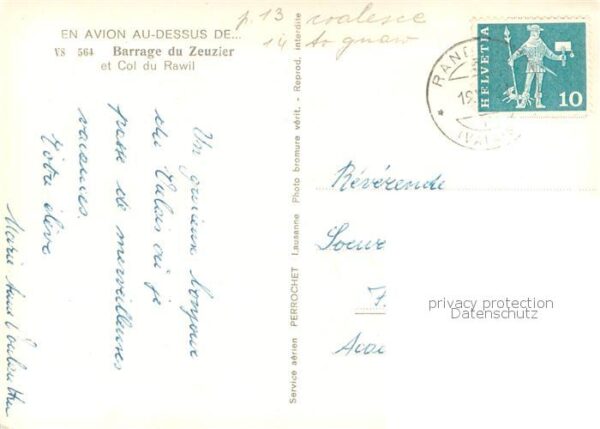 EN AVION AU-DESSUS DE...
VS 564 Barrage du Zeuzier
et Col du Rawil
p. 13
14
Un gracieux bonjour
du Valais où je
passe de merveilleuses
vacances.
Votre élève
Marie
Service aérien PERROCHET Lausanne Photo bromure vérit. - Reprod. interdite
HELVETIA
10
RAND
19
(VALAIS)
Révérende
Soeur
F
Acad
privacy protection
Datenschutz